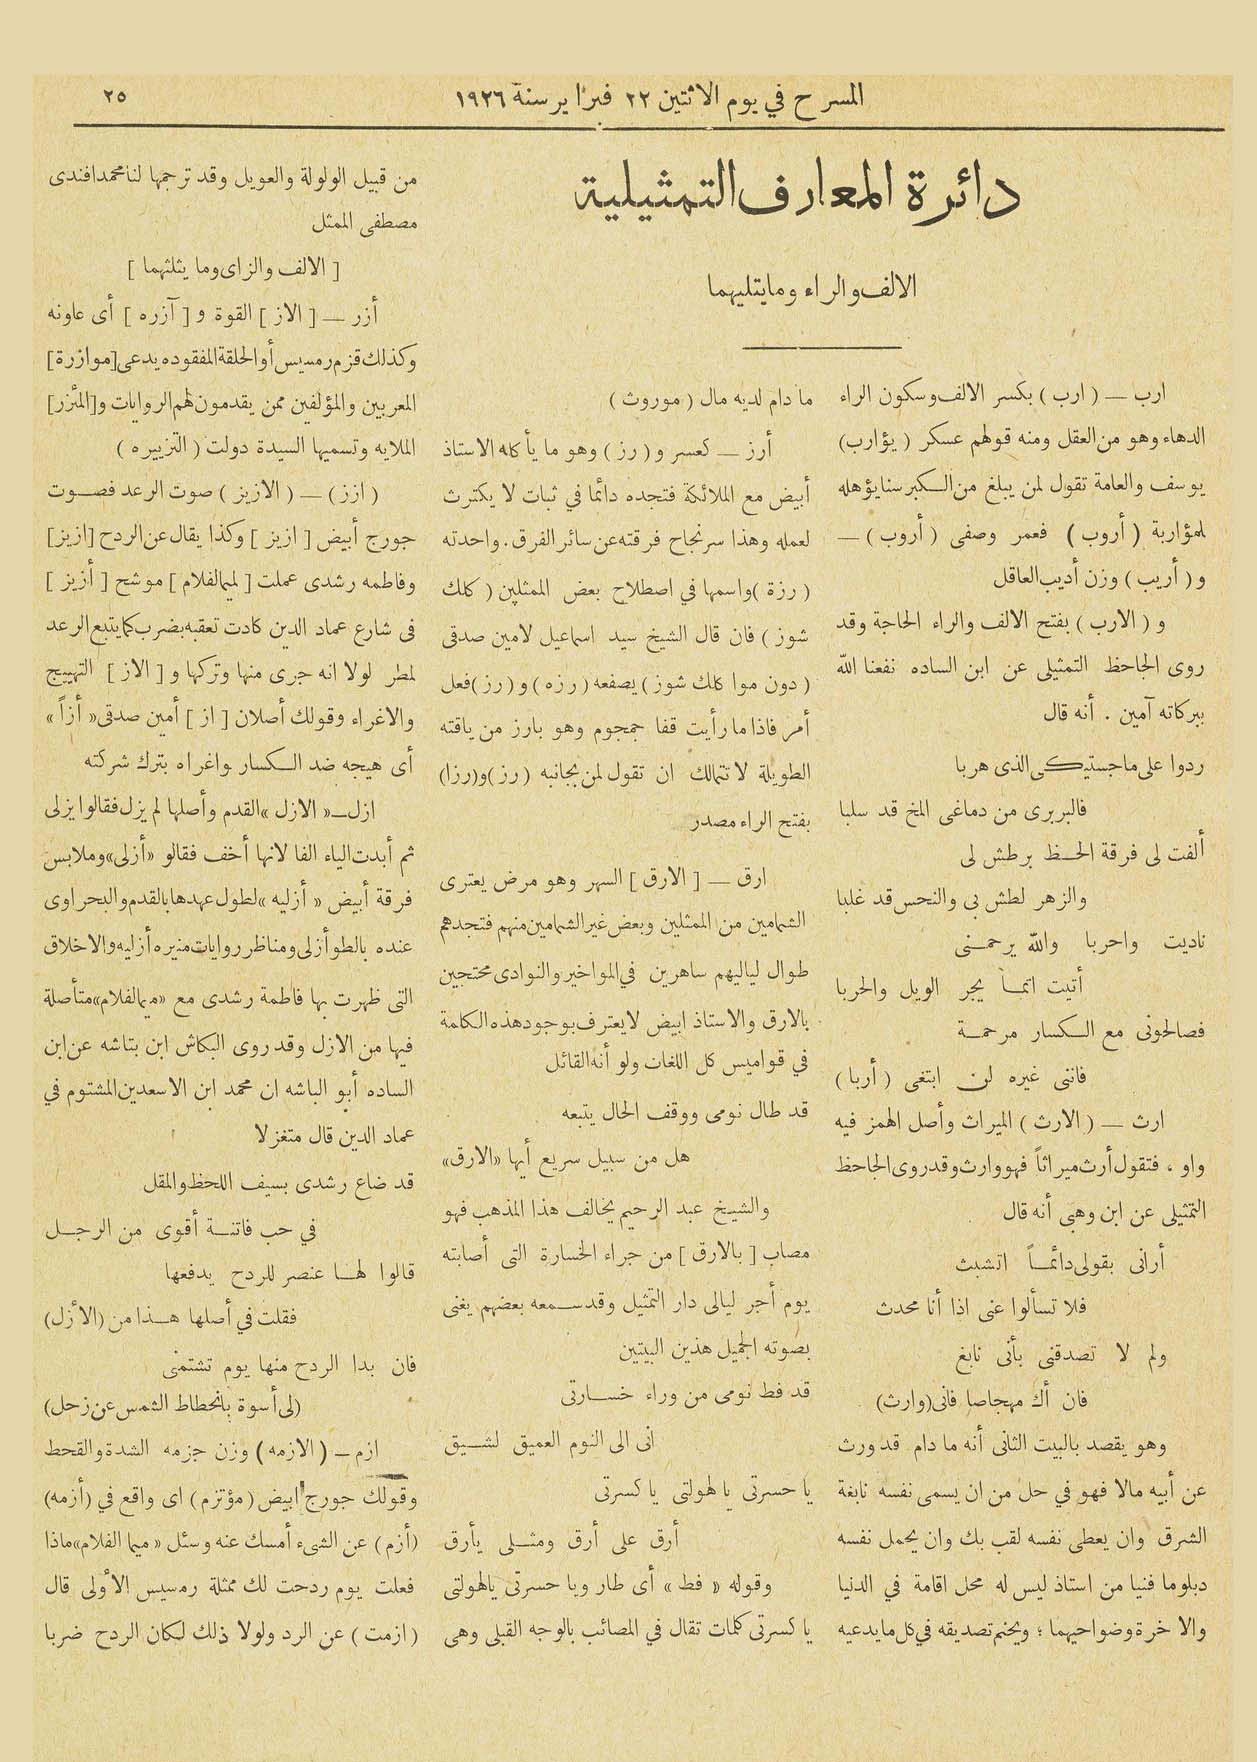 المسرح في يوم الاثنين ٢٢ فبراير سنة ١٩٢٦
٢٥
دائرة المعارف التمثيلية
الالف والراء وما يتليهما
ارب — ( ارب ) بكسر الالف وسكون الراء
الدهاء وهو من العقل ومنه قولهم عسكر ( يؤارب)
يوسف والعامة تقول لمن يبلغ من الكبر سنا يؤهله
لمؤاربة ( أروب ) فعمر وصفى ( أروب ) —
و ( أريب ) وزن أديب العاقل
و ( الارب ) بفتح الالف والراء الحاجة وقد
روى الجاحظ التمثيلى عن ابن الساده نفعنا الله
ببركاته آمين . أنه قال
ردوا على ماجستيكى الذى هربا
فالبربرى من دماغى المخ قد سلبا
ألفت لى فرقة الحظ برطش لى
والزهر لطش بى والنحس قد غلبا
ناديت واحربا والله يرحمنى
أتيت انما يجر الويل والحربا
فصالحونى مع الكسار مرحمة
فاننى غيره لن ابتغى ( أربا )
ارث — ( الارث ) الميراث وأصل الهمز فيه
واو ، فتقول أرث ميراثاً فهو وارث وقد روى الجاحظ
التمثيلى عن ابن وهبى أنه قال
أرانى بقولى دائماً اتشبث
فلا تسألوا عنى اذا أنا محدث
ولم لا تصدقنى بأنى نابغ
فان أك مهجاصا فانى (وارث)
وهو يقصد بالبيت الثانى أنه ما دام قد ورث
عن أبيه مالا فهو في حل من ان يسمى نفسه نابغة
الشرق وان يعطى نفسه لقب بك وان يحمل نفسه
دبلوما فنيا من استاذ ليس له محل اقامة في الدنيا
والاخرة وضواحيهما ؛ ويختم تصديقه في كل ما يدعيه
ما دام لديه مال ( موروث )
أرز — كعسر و ( رز ) وهو ما يأكله الاستاذ
أبيض مع الملائكة فتجده دائما في ثبات لا يكترث
لعمله وهذا سر نجاح فرقته عن سائر الفرق . واحدته
( رزة ) واسمها في اصطلاح بعض الممثلين ( كلك
شوز ) فان قال الشيخ سيد اسماعيل لامين صدقى
( دون موا كلك شوز ) يصفعه ( رزه ) و ( رز ) فعل
أمر فاذا ما رأيت قفا جمجوم وهو بارز من ياقته
الطويلة لا تتمالك ان تقول لمن بجانبه ( رز ) و (رزا)
بفتح الراء مصدر
ارق — [ الارق ] السهر وهو مرض يعترى
الشمامين من الممثلين وبعض غير الشمامين منهم فتجدهم
طوال لياليهم ساهرين في المواخير والنوادى محتجين
بالارق والاستاذ ابيض لا يعترف بوجود هذه الكلمة
في قواميس كل اللغات ولو أنه القائل
قد طال نومى ووقف الحال يتبعه
هل من سبيل سريع أيها «الارق»
والشيخ عبد الرحيم يخالف هذا المذهب فهو
مصاب [ بالارق ] من جراء الخسارة التى أصابته
يوم أجر ليالى دار التمثيل وقد سمعه بعضهم يغنى
بصوته الجميل هذين البيتين
قد فط نومى من وراء خسارتى
انى الى النوم العميق لشيق
يا حسرتى يا لهولتى يا كسرتى
أرق على أرق ومثلى يأرق
وقوله « فط » أى طار ويا حسرتى يالهولتى
يا كسرتى كلمات تقال في المصائب بالوجه القبلى وهى
من قبيل الولولة والعويل وقد ترجمها لنا محمد افندى
مصطفى الممثل
[ الالف والزاى وما يثلثهما ]
أزر — [ الاز ] القوة و [ آزره ] أى عاونه
وكذلك قزم رمسيس أو الحلقة المفقوده يدعى [موازرة]
المعربين والمؤلفين ممن يقدمون لهم الروايات و [المئزر]
الملايه وتسميها السيدة دولت ( التزييره )
( ازز ) — ( الازيز ) صوت الرعد فصوت
جورج أبيض [ ازيز ] وكذا يقال عن الردح [ازيز]
وفاطمه رشدى عملت [ لميمالفلام ] موشح [ أزيز ]
فى شارع عماد الدين كادت تعقبه بضرب كما يتبع الرعد
لمطر لولا انه جرى منها وتركها و [ الاز ] التهييج
والاغراء وقولك أصلان [ از ] أمين صدقى « أزاً »
أى هيجه ضد الكسار واغراه بترك شركته
ازل — « الازل » القدم وأصلها لم يزل فقالوا يزلى
ثم أبدت الياء الفا لانها أخف فقالو «أزلى» وملابس
فرقة أبيض « أزليه » لطول عهدها بالقدم والبحراوى
عنده بالطو أزلى ومناظر روايات منيره أزليه والاخلاق
التى ظهرت بها فاطمة رشدى مع «ميمالفلام» متأصلة
فيها من الازل وقد روى البكاش ابن بتاشه عن ابن
الساده أبو الباشه ان محمد ابن الاسعدين المشتوم في
عماد الدين قال متغزلا
قد ضاع رشدى بسيف اللحظ والمقل
في حب فاتنة أقوى من الرجل
قالوا لها عنصر للردح يدفعها
فقلت في أصلها هذا من (الأزل)
فان بدا الردح منها يوم تشتمنى
(لى أسوة بانحطاط الشمس عن زحل)
ازم — ( الازمه ) وزن جزمه الشدة والقحط
وقولك جورج ابيض ( مؤتزم ) اى واقع في (أزمه)
( أزم ) عن الشىء أمسك عنه وسئل « ميما الفلام» ماذا
فعلت يوم ردحت لك ممثلة رمسيس الأولى قال
( ازمت ) عن الرد ولولا ذلك لكان الردح ضربا